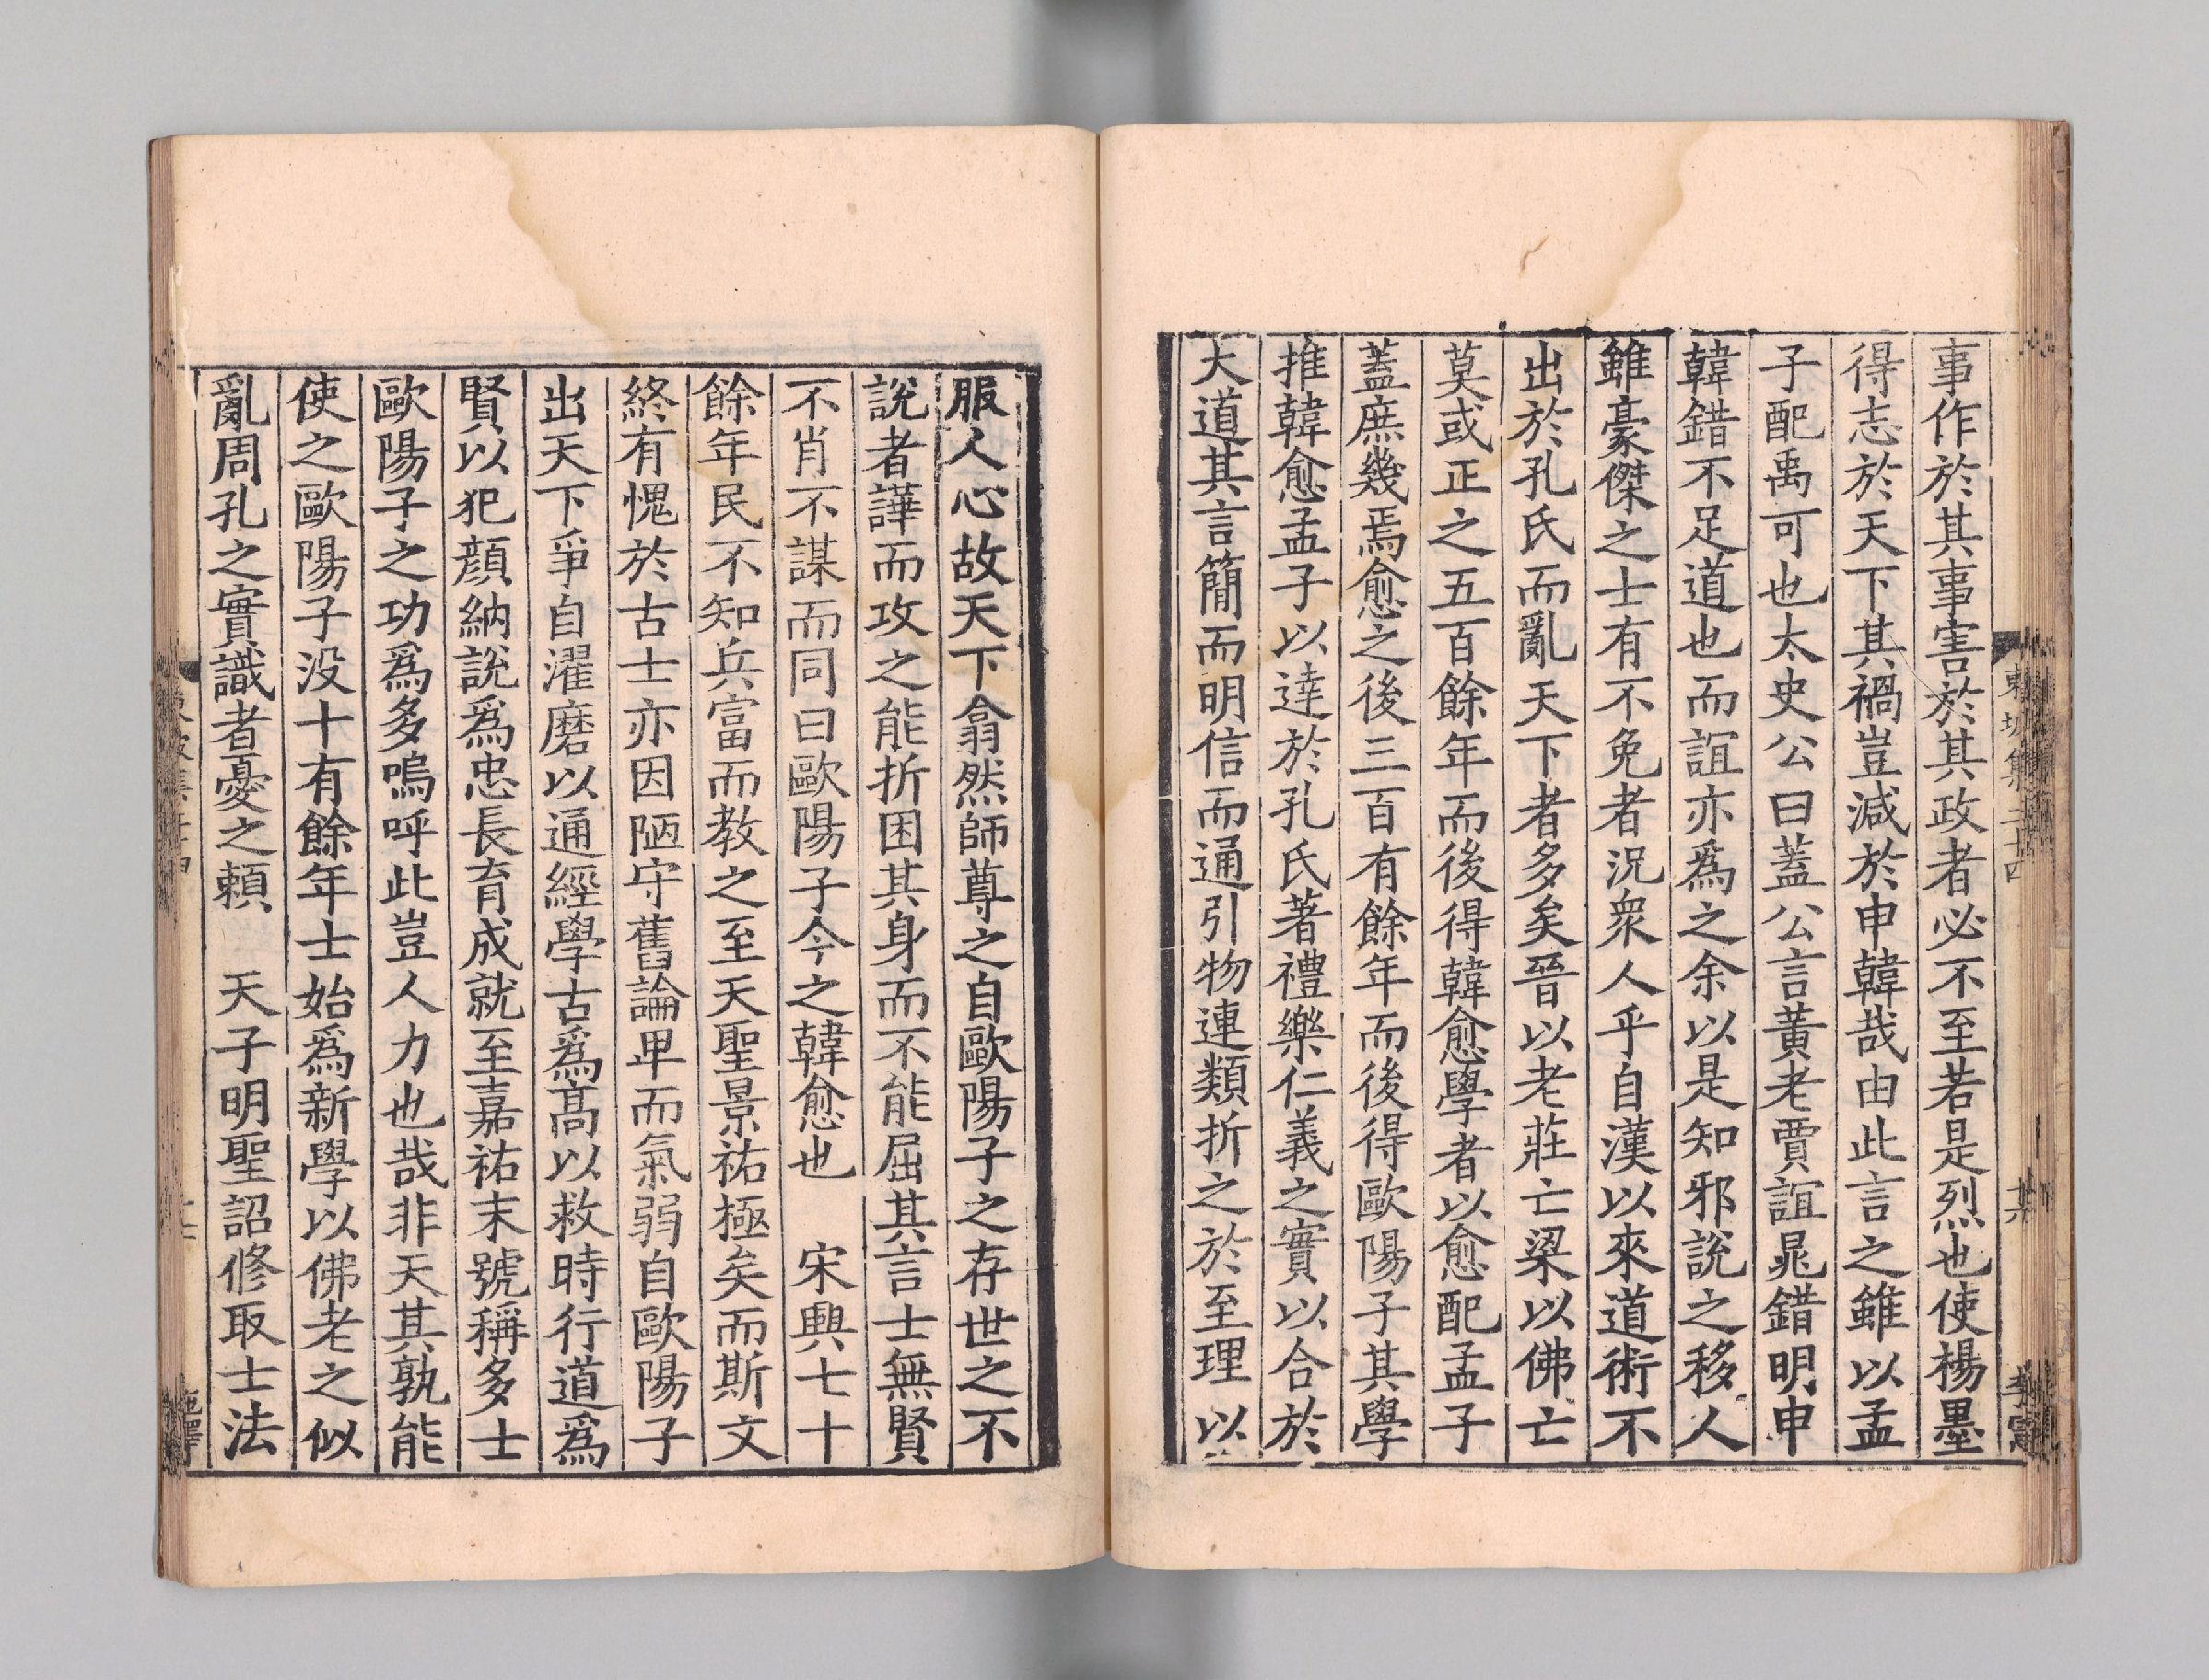 事作於其事害於其政者必不至若是烈也使楊墨
得志於天下其禍豈減於申韓哉由此言之雖以孟
子配禹可也太史公曰蓋公言黃老賈誼晁錯明申
韓錯不足道也而誼亦爲之余以是知邪說之移人
雖豪傑之士有不免者況衆人乎自漢以來道術不
出於孔氏而亂天下者多矣晉以老莊亡梁以佛亡
莫或正之五百餘年而後得韓愈學者以愈配孟子
蓋庶幾焉愈之後三百有餘年而後得歐陽子其學
推韓愈孟子以達於孔氏著禮樂仁義之實以合於
大道其言簡而明信而通引物連類折之於至理以
服人心故天下翕然師尊之自歐陽子之存世之不
說者譁而攻之能折困其身而不能屈其言士無賢
不肖不謀而同曰歐陽子今之韓愈也　宋興七十
餘年民不知兵富而教之至天聖景祐極矣而斯文
終有愧於古士亦因陋守舊論卑而氣弱自歐陽子
出天下爭自濯磨以通經學古爲高以救時行道爲
賢以犯顏納說爲忠長育成就至嘉祐末號稱多士
歐陽子之功爲多嗚呼此豈人力也哉非天其孰能
使之歐陽子没十有餘年士始爲新學以佛老之似
亂周孔之實識者憂之賴　天子明聖詔修取士法